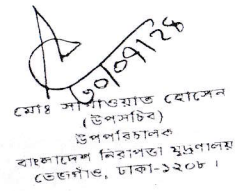 ৩০/০৭/২৪
মোঃ সাখাওয়াত হোসেন
(উপসচিব)
উপপরিচালক
বাংলাদেশ নিরাপত্তা মুদ্রণালয়
তেজগাঁও, ঢাকা-১২০৮।